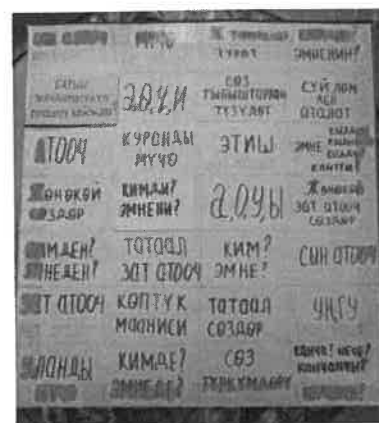 МҮЧӨ
ТУРАТ
ЭМНЕНИН?
Э,Ө,Ү,И
СӨЗ
ТЫБЫШТАРДАН
ТҮЗҮЛӨТ
СҮЙЛӨМ
ДЕП
АТАЛАТ
АТООЧ
КУРАНДЫ
МҮЧӨ
ЭТИШ
ЭМНЕ
КАНТТИ?
ЖӨНӨКӨЙ
СӨЗДӨР
КИМДИ?
ЭМНЕНИ?
А,О,У,Ы
ЖӨНӨКӨЙ
ЗАТ АТООЧ
СӨЗДӨР
КИМДЕН?
ЭМНЕДЕН?
ТАТААЛ
ЗАТ АТООЧ
КИМ?
ЭМНЕ?
СЫН АТООЧ
ЗАТ АТООЧ
КӨПТҮК
МААНИСИ
ТАТААЛ
СӨЗДӨР
УҢГУ
УЛАНДЫ
МҮЧӨ
КИМДЕ?
ЭМНЕДЕ?
СӨЗ
ТҮРКҮМДӨРҮ
КАНЧА? НЕЧЕ?
КАНЧАНЧЫ?